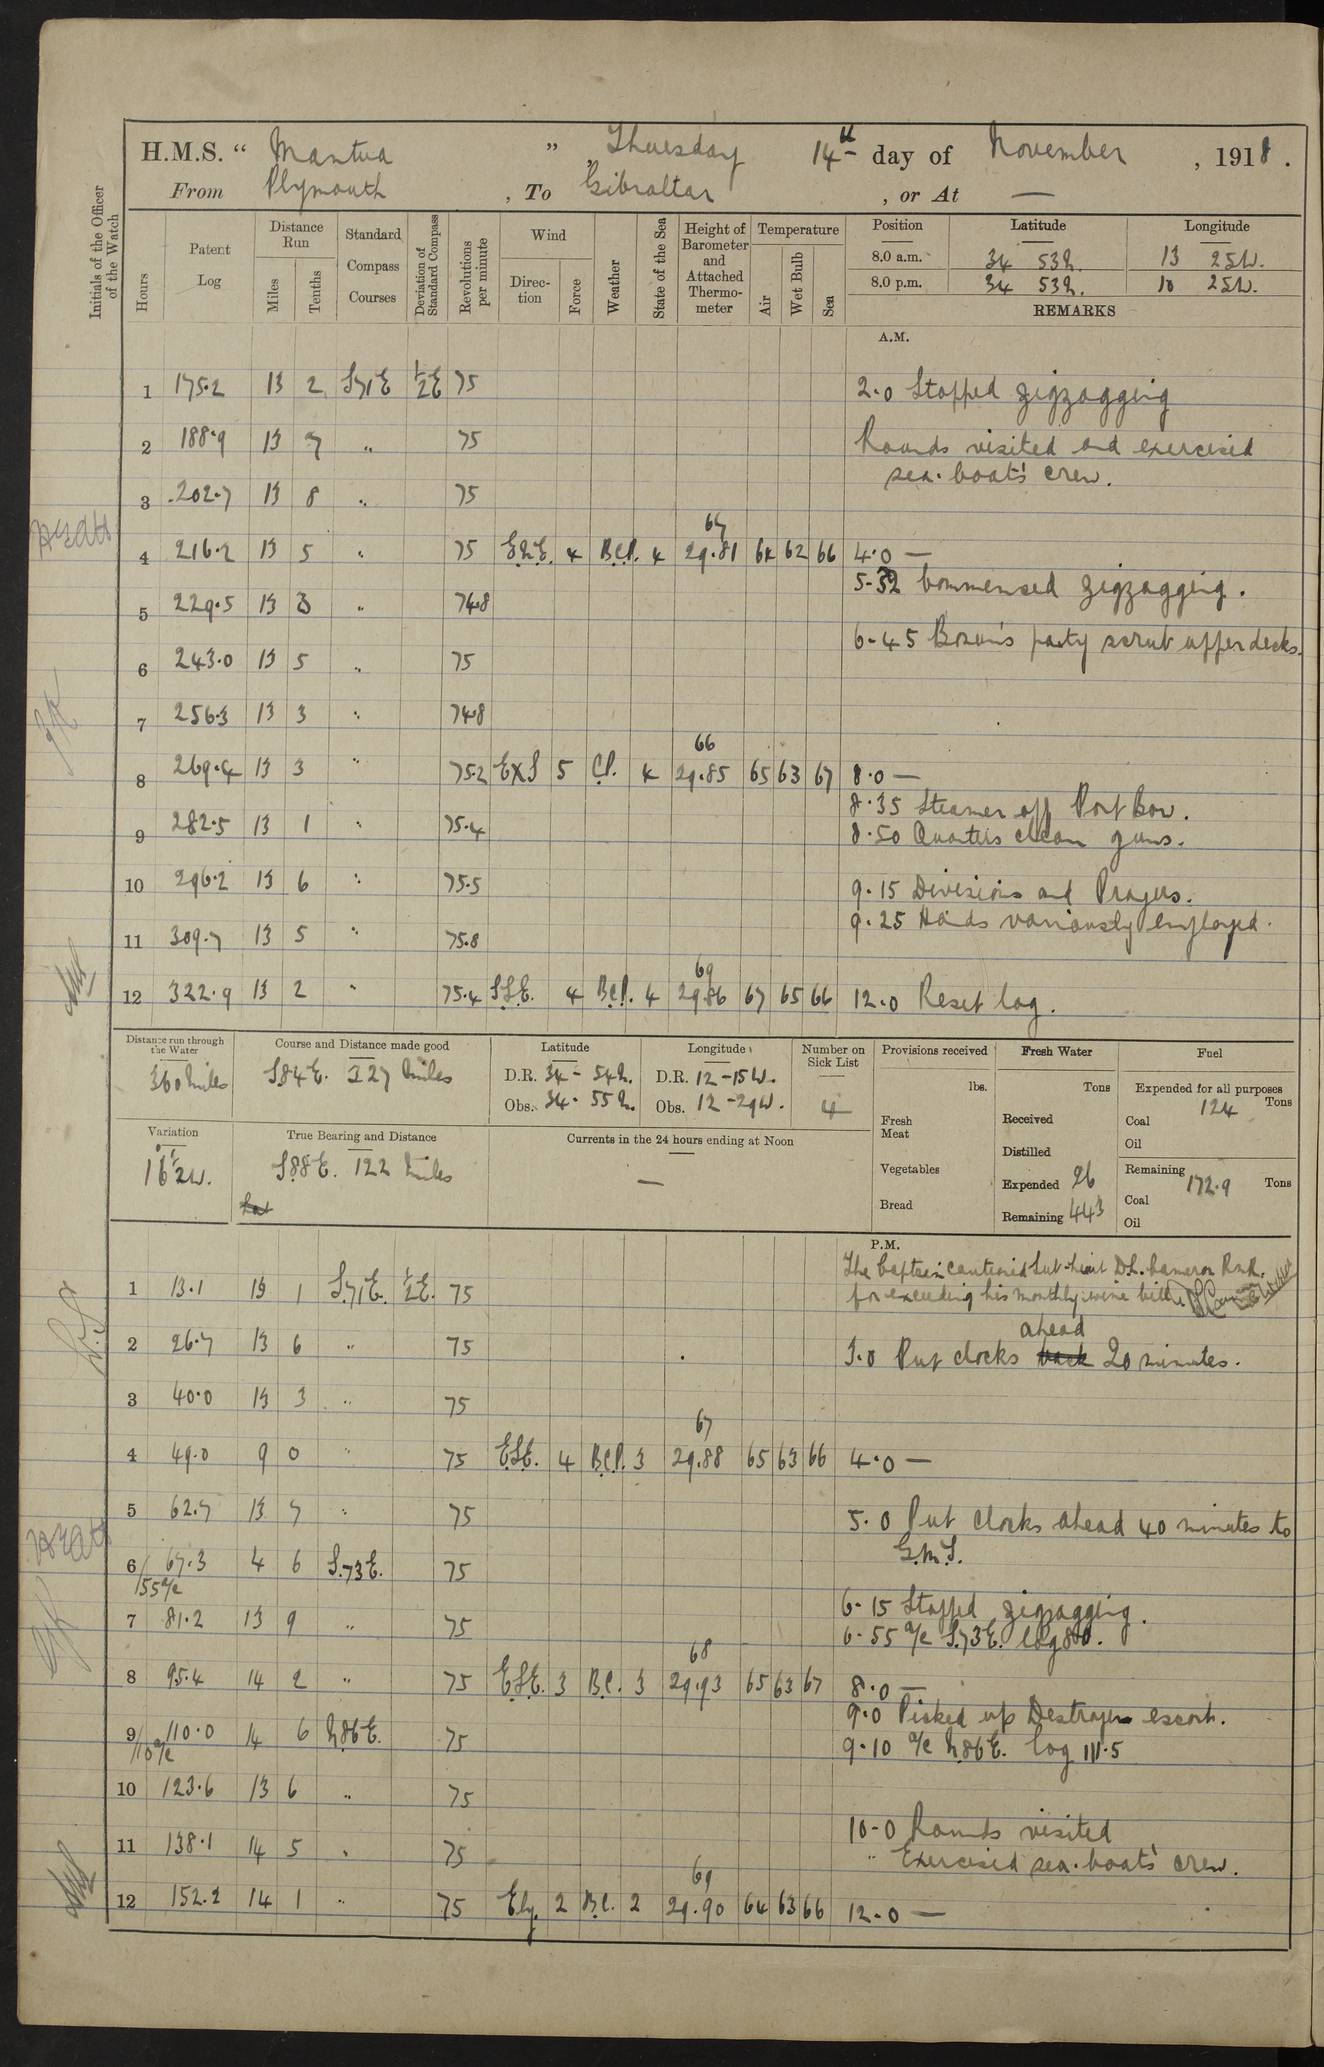 H.M.S. " Mantua " , Thursday 14th day of November , 1918 .
From Plymouth , To Gibraltar , or At —
Initials of the Officer of the Watch
Hours
Patent Log
Distance Run
Miles
Tenths
Standard Compass Courses
Deviation of Standard Compass
Revolutions per minute
Wind
Direction
Force
Weather
State of the Sea
Height of Barometer and Attached Thermometer
Temperature
Air
Wet Bulb
Sea
Position Latitude Longitude
8.0 a.m. 34 53N. 13 25W.
8.0 p.m. 34 53N. 10 25W.
REMARKS
A.M.
1 175.2 13 2 S71E ½E 75 2.0 Stopped zigzagging
2 188.9 13 7 " 75 Rounds visited and exercised
sea-boat's crew.
3 202.7 13 8 " 75
4 216.2 13 5 " 75 E.N.E. 4 B.C.P. 4 67 29.81 64 62 66 4.0 —
5-32 Commenced zigzagging.
5 229.5 13 3 " 74.8
6-45 Bosun's party scrub upper decks.
6 243.0 13 5 " 75
7 256.3 13 3 " 74.8
8 269.4 13 3 " 75.2 ExS 5 C.P. 4 66 29.85 65 63 67 8.0 —
8.35 Steamer off Port Bow.
9 282.5 13 1 " 75.4 8.50 Quarters clean guns.
10 296.2 13 6 " 75.5 9.15 Divisions and Prayers.
9.25 Hands variously employed.
11 309.7 13 5 " 75.8
12 322.9 13 2 " 75.4 S.S.E. 4 B.C.P. 4 69 29.86 67 65 66 12.0 Reset log.
Distance run through the Water
360 Miles
Course and Distance made good
S84E. 327 Miles
Latitude
D.R. 34 - 54N.
Obs. 34 - 55N.
Longitude
D.R. 12 - 15W.
Obs. 12 - 29W.
Number on Sick List
4
Provisions received
lbs.
Fresh Meat
Vegetables
Bread
Fresh Water
Tons
Received
Distilled
Expended 26
Remaining 443
Fuel
Expended for all purposes
124 Tons
Coal
Oil
Remaining
172.9 Tons
Coal
Oil
Variation
16½W.
True Bearing and Distance
S88E. 122 Miles
Currents in the 24 hours ending at Noon
—
P.M.
The Captain cautioned Sub-Lieut D.L. Cameron R.N.R.
1 13.1 13 1 S.71E. ½E. 75 for exceeding his monthly wine bill
ahead
2 26.7 13 6 " 75 3.0 Put clocks back 20 minutes.
3 40.0 13 3 " 75
4 49.0 9 0 " 75 E.S.E. 4 B.C.P. 3 67 29.88 65 63 66 4.0 —
5 62.7 13 7 " 75 5.0 Put clocks ahead 40 minutes to
G.M.T.
6 67.3 4 6 S.73E. 75
/55 a/c
6-15 Stopped zigzagging.
7 81.2 13 9 " 75 6-55 a/c S.73E. log 80.0.
8 95.4 14 2 " 75 E.S.E. 3 B.C. 3 68 29.93 65 63 67 8.0 —
9.0 Picked up Destroyer escort.
9 110.0 14 6 N.86E. 75 9-10 a/c N.86E. log 111.5
/10 a/c
10 123.6 13 6 " 75
10-0 Rounds visited
11 138.1 14 5 " 75 " Exercised sea-boats' crew.
12 152.2 14 1 " 75 Ely. 2 B.C. 2 69 29.90 64 63 66 12.0 —